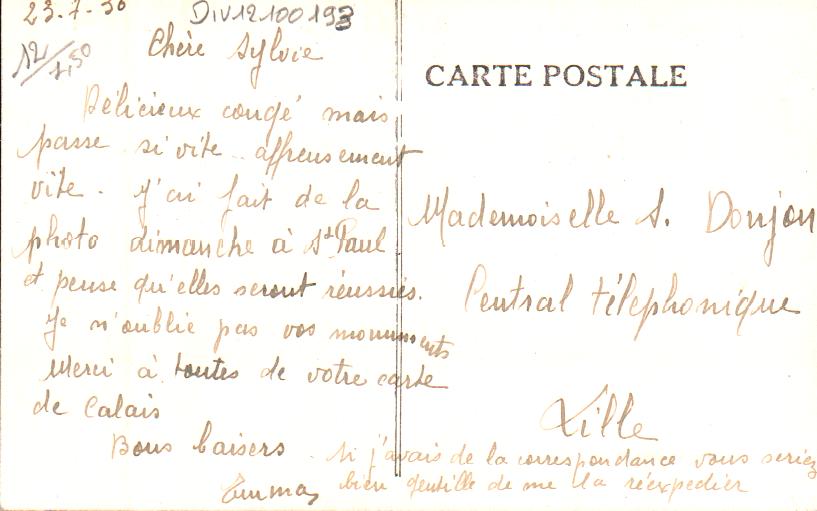 23-7-30
DIV12100193
12/7,50
Chère Sylvie
Délicieux congé mais
passe si vite.. affreusement
vite. J'ai fait de la
photo dimanche à St Paul
et pense qu'elles seront réussies.
Je n'oublie pas vos monuments
Merci à toutes de votre carte
de Calais
Bons baisers
Emma
CARTE POSTALE
Mademoiselle S. Donjon
Central téléphonique
Lille
Si j'avais de la correspondance vous seriez
bien gentille de me la réexpedier